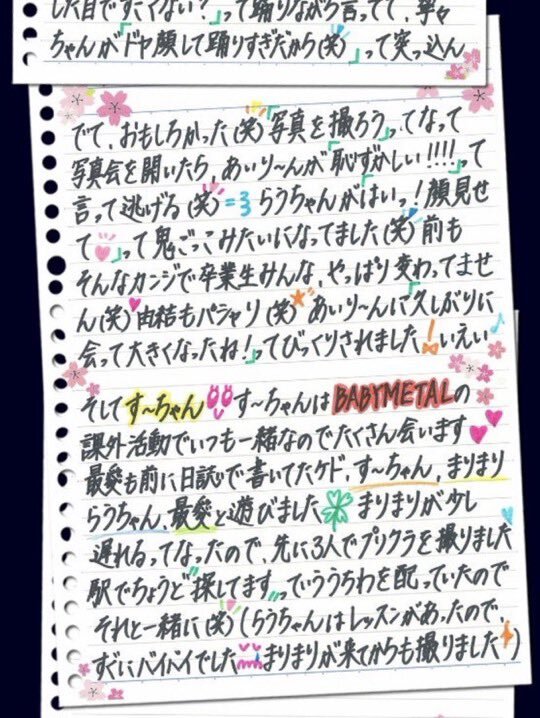 した目ですごくない?」って踊りながら言ってて、寧々
ちゃんが「ドヤ顔して踊りすぎだから(笑)」って突っ込ん
でて、おもしろかった(笑)「写真を撮ろう」ってなって
写真会を開いたら、あいり〜んが「恥ずかしい!!!!」って
言って逃げる(笑)らうちゃんが「はいっ!顔見せ
て♥」って鬼ごっこみたいになってました(笑)前も
そんなカンジで卒業生みんな、やっぱり変わってませ
ん(笑)♥由結もパシャリ(笑)★あいり〜んに久しぶりに
会って「大きくなったね!」ってびっくりされました!いえい♪
そしてす〜ちゃん!!す〜ちゃんはBABYMETALの
課外活動でいつも一緒なのでたくさん会います♥♥
最愛も前に日誌で書いてたケド、す〜ちゃん、まりまり
らうちゃん、最愛と遊びました🍀まりまりが少し
遅れるってなったので、先に3人でプリクラを撮りました
駅でちょうど"探してます"っていううちわを配っていたので
それと一緒に(笑)(らうちゃんはレッスンがあったので、
すぐにバイバイでしたまりまりが来てからも撮りました)